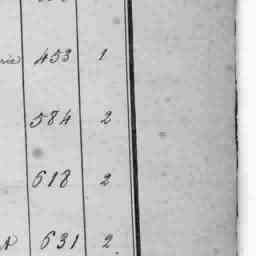 453 1
584 2
618 2
631 2